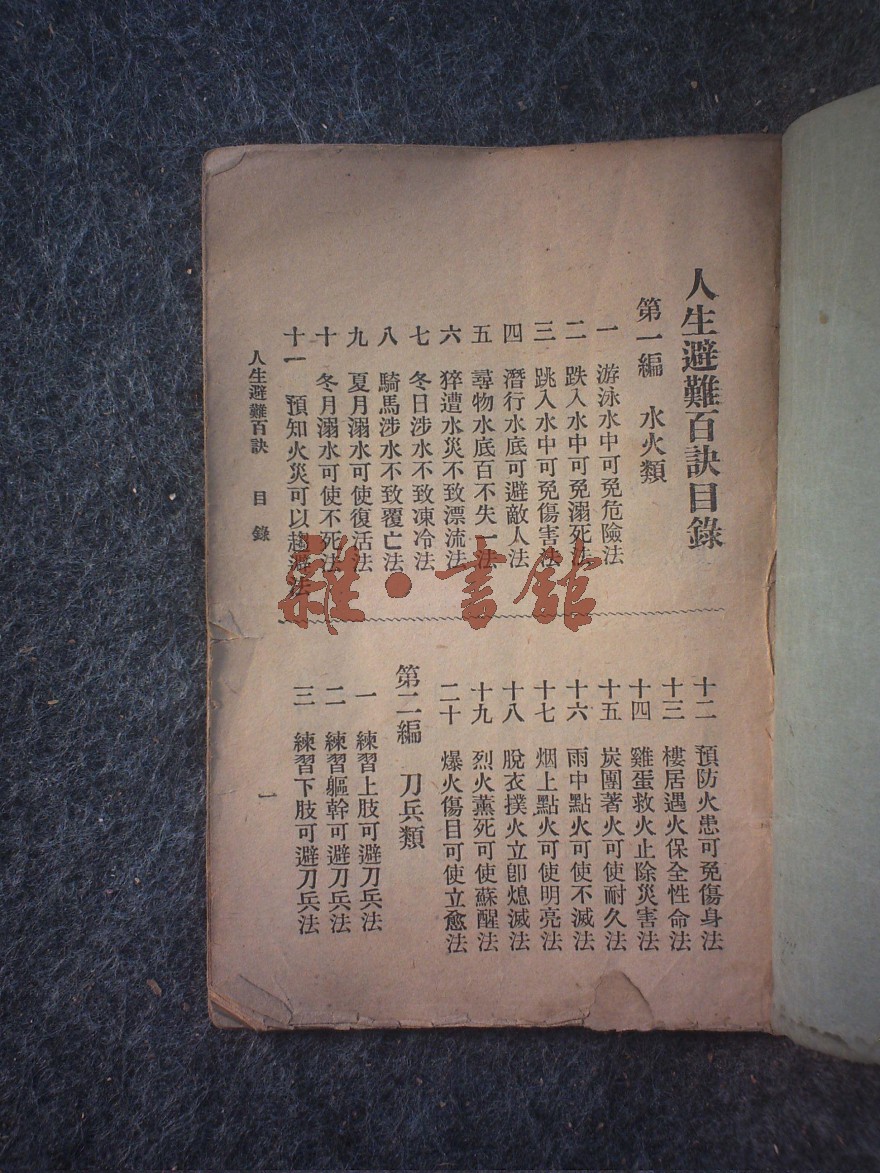 人生避難百訣目錄
第一編　水火類
一　游泳水中可免危險法
二　跌入水中可免溺死法
三　跳入水中可免傷害法
四　潛行水底可避敵人法
五　尋物水底百不失一法
六　猝遭水災不致漂流法
七　冬日涉水不致凍冷法
八　騎馬涉水不致覆亡法
九　夏月溺水可使復活法
十　冬月溺水可使不死法
十一　預知火災可以趨避法
十二　預防火患可免傷身法
十三　樓居遇火保全性命法
十四　雞蛋救火止除災害法
十五　炭團著火可使耐久法
十六　雨中點火可使不滅法
十七　烟上點火可使明亮法
十八　脫衣撲火立卽熄滅法
十九　烈火薰死可使蘇醒法
二十　爆火傷目可使立愈法
第二編　刀兵類
一　練習上肢可避刀兵法
二　練習軀幹可避刀兵法
三　練習下肢可避刀兵法
人生避難百訣　目錄
一
雜·書館